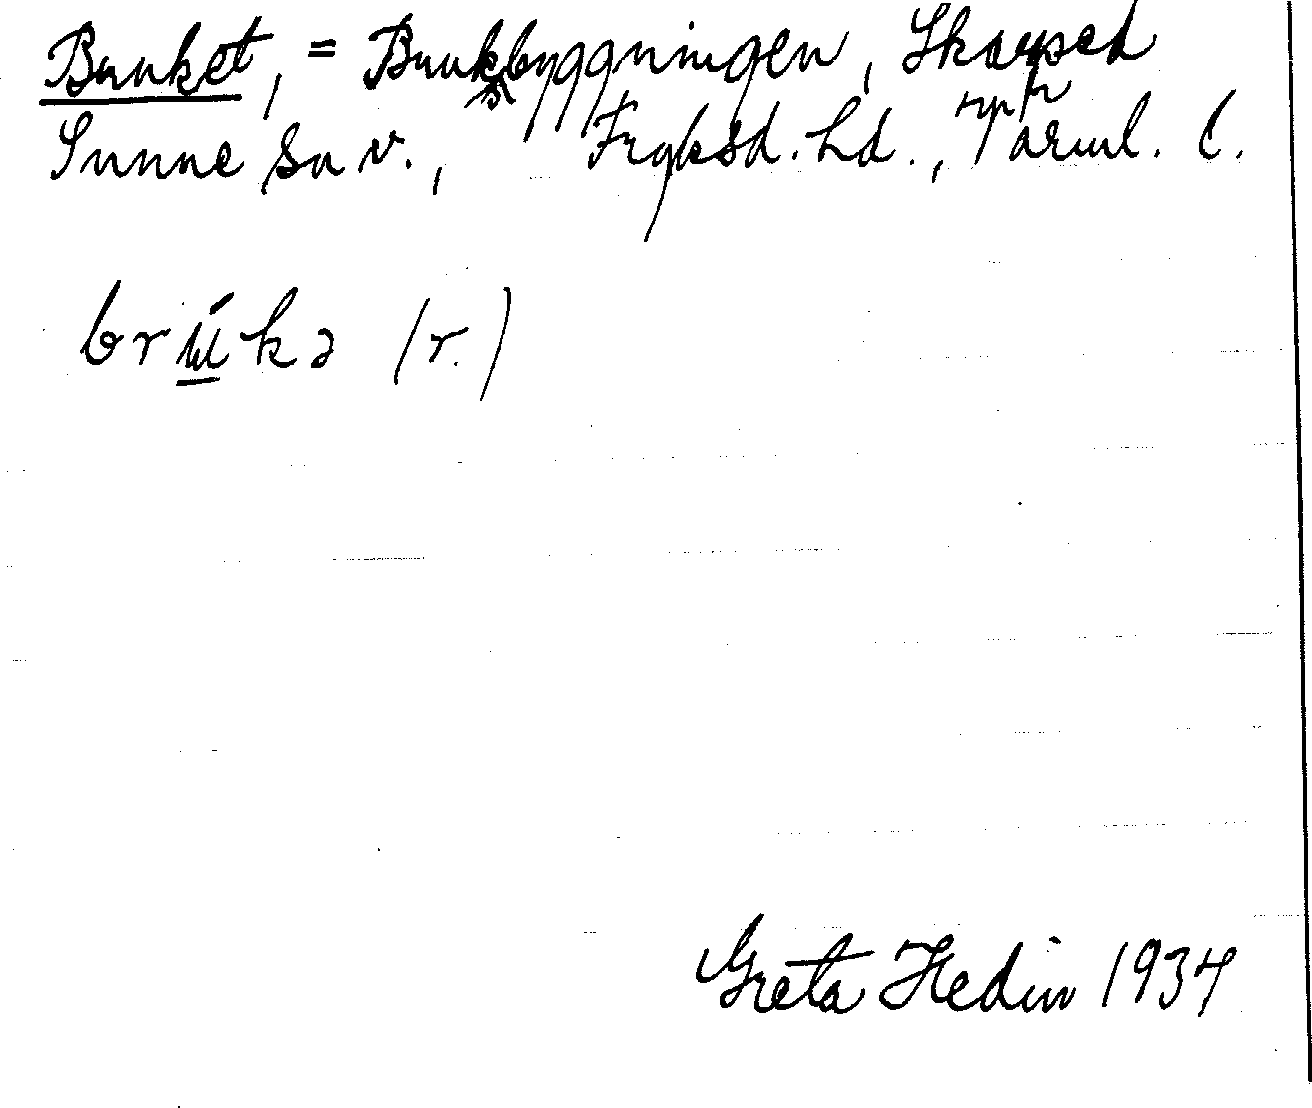 Bruket, = Bruksbyggningen, Skarped
Sunne sn v., Fryksd. hd., Värml. l.
brúkə (r.)
Greta Hedin 1934